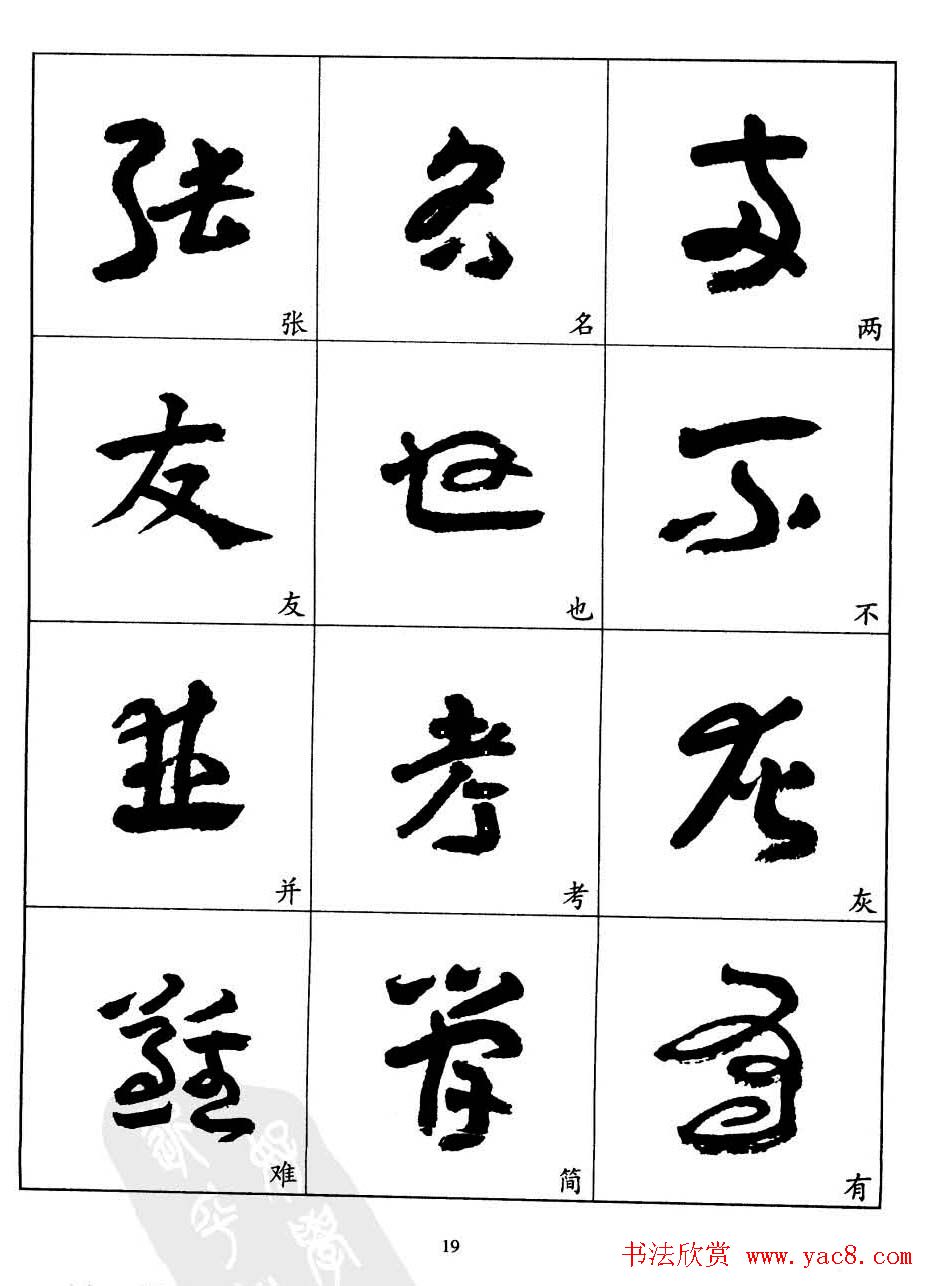 张 名 两
张 名 两
友 也 不
友 也 不
並 考 灰
并 考 灰
難 简 有
难 简 有
19
书法欣赏 www.yac8.com